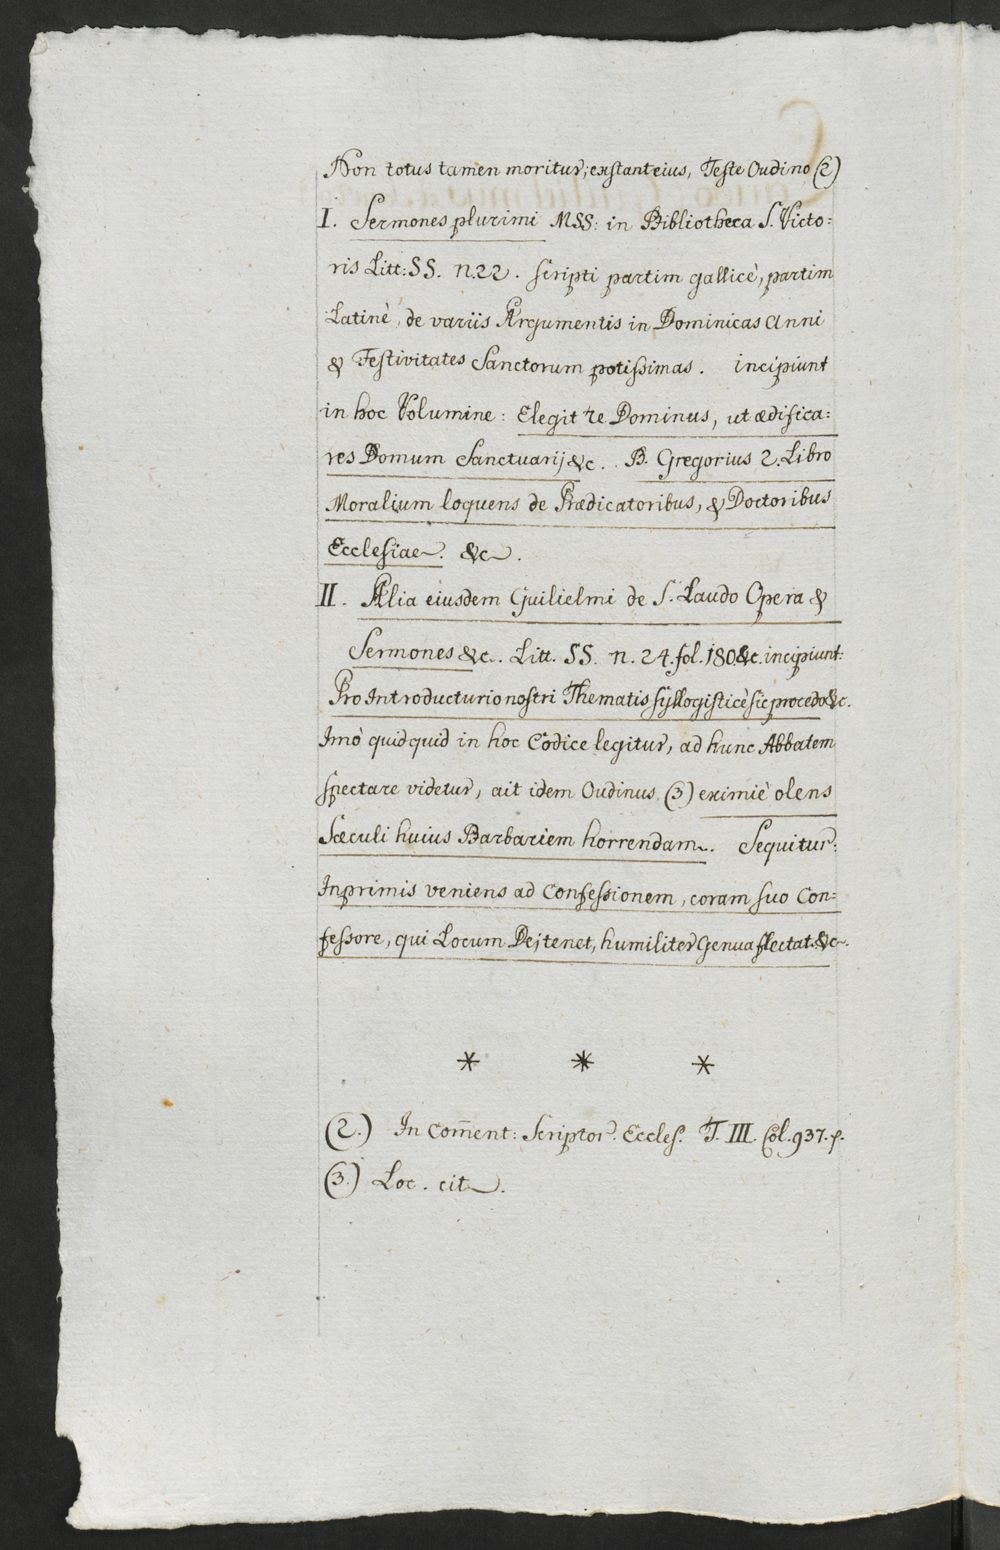 Non totus tamen moritur; exstant eius, Teste Oudino (2)
I. Sermones plurimi MSS: in Bibliotheca S. Victo:
ris Litt: SS. n. 22. scripti partim gallicè, partim
Latinè, de variis Argumentis in Dominicas Anni
& Festivitates Sanctorum potissimas. incipiunt
in hoc Volumine: Elegit te Dominus, ut ædifica:
res Domum Sanctuarij &c.. B. Gregorius 2. Libro
Moralium loquens de Prædicatoribus, & Doctoribus
Ecclesiae. &c.
II. Alia eiusdem Guilielmi de S. Laudo Opera &
Sermones &c.. Litt. SS. n. 24. fol. 180 &c. incipiunt:
Pro Introducturio nostri Thematis syllogisticè sic procedo &c.
Imò quidquid in hoc Codice legitur, ad hunc Abbatem
spectare videtur, ait idem Oudinus, (3) eximiè olens
Sæculi huius Barbariem horrendam. Sequitur:
Inprimis veniens ad Confessionem, coram suo Con=
fessore, qui Locum Dei tenet, humiliter Genua flectat. &c.
* * *
(2.) In Com̄ent: Scriptor. Eccles. T. III. Col. 937. s.
(3.) Loc. cit.